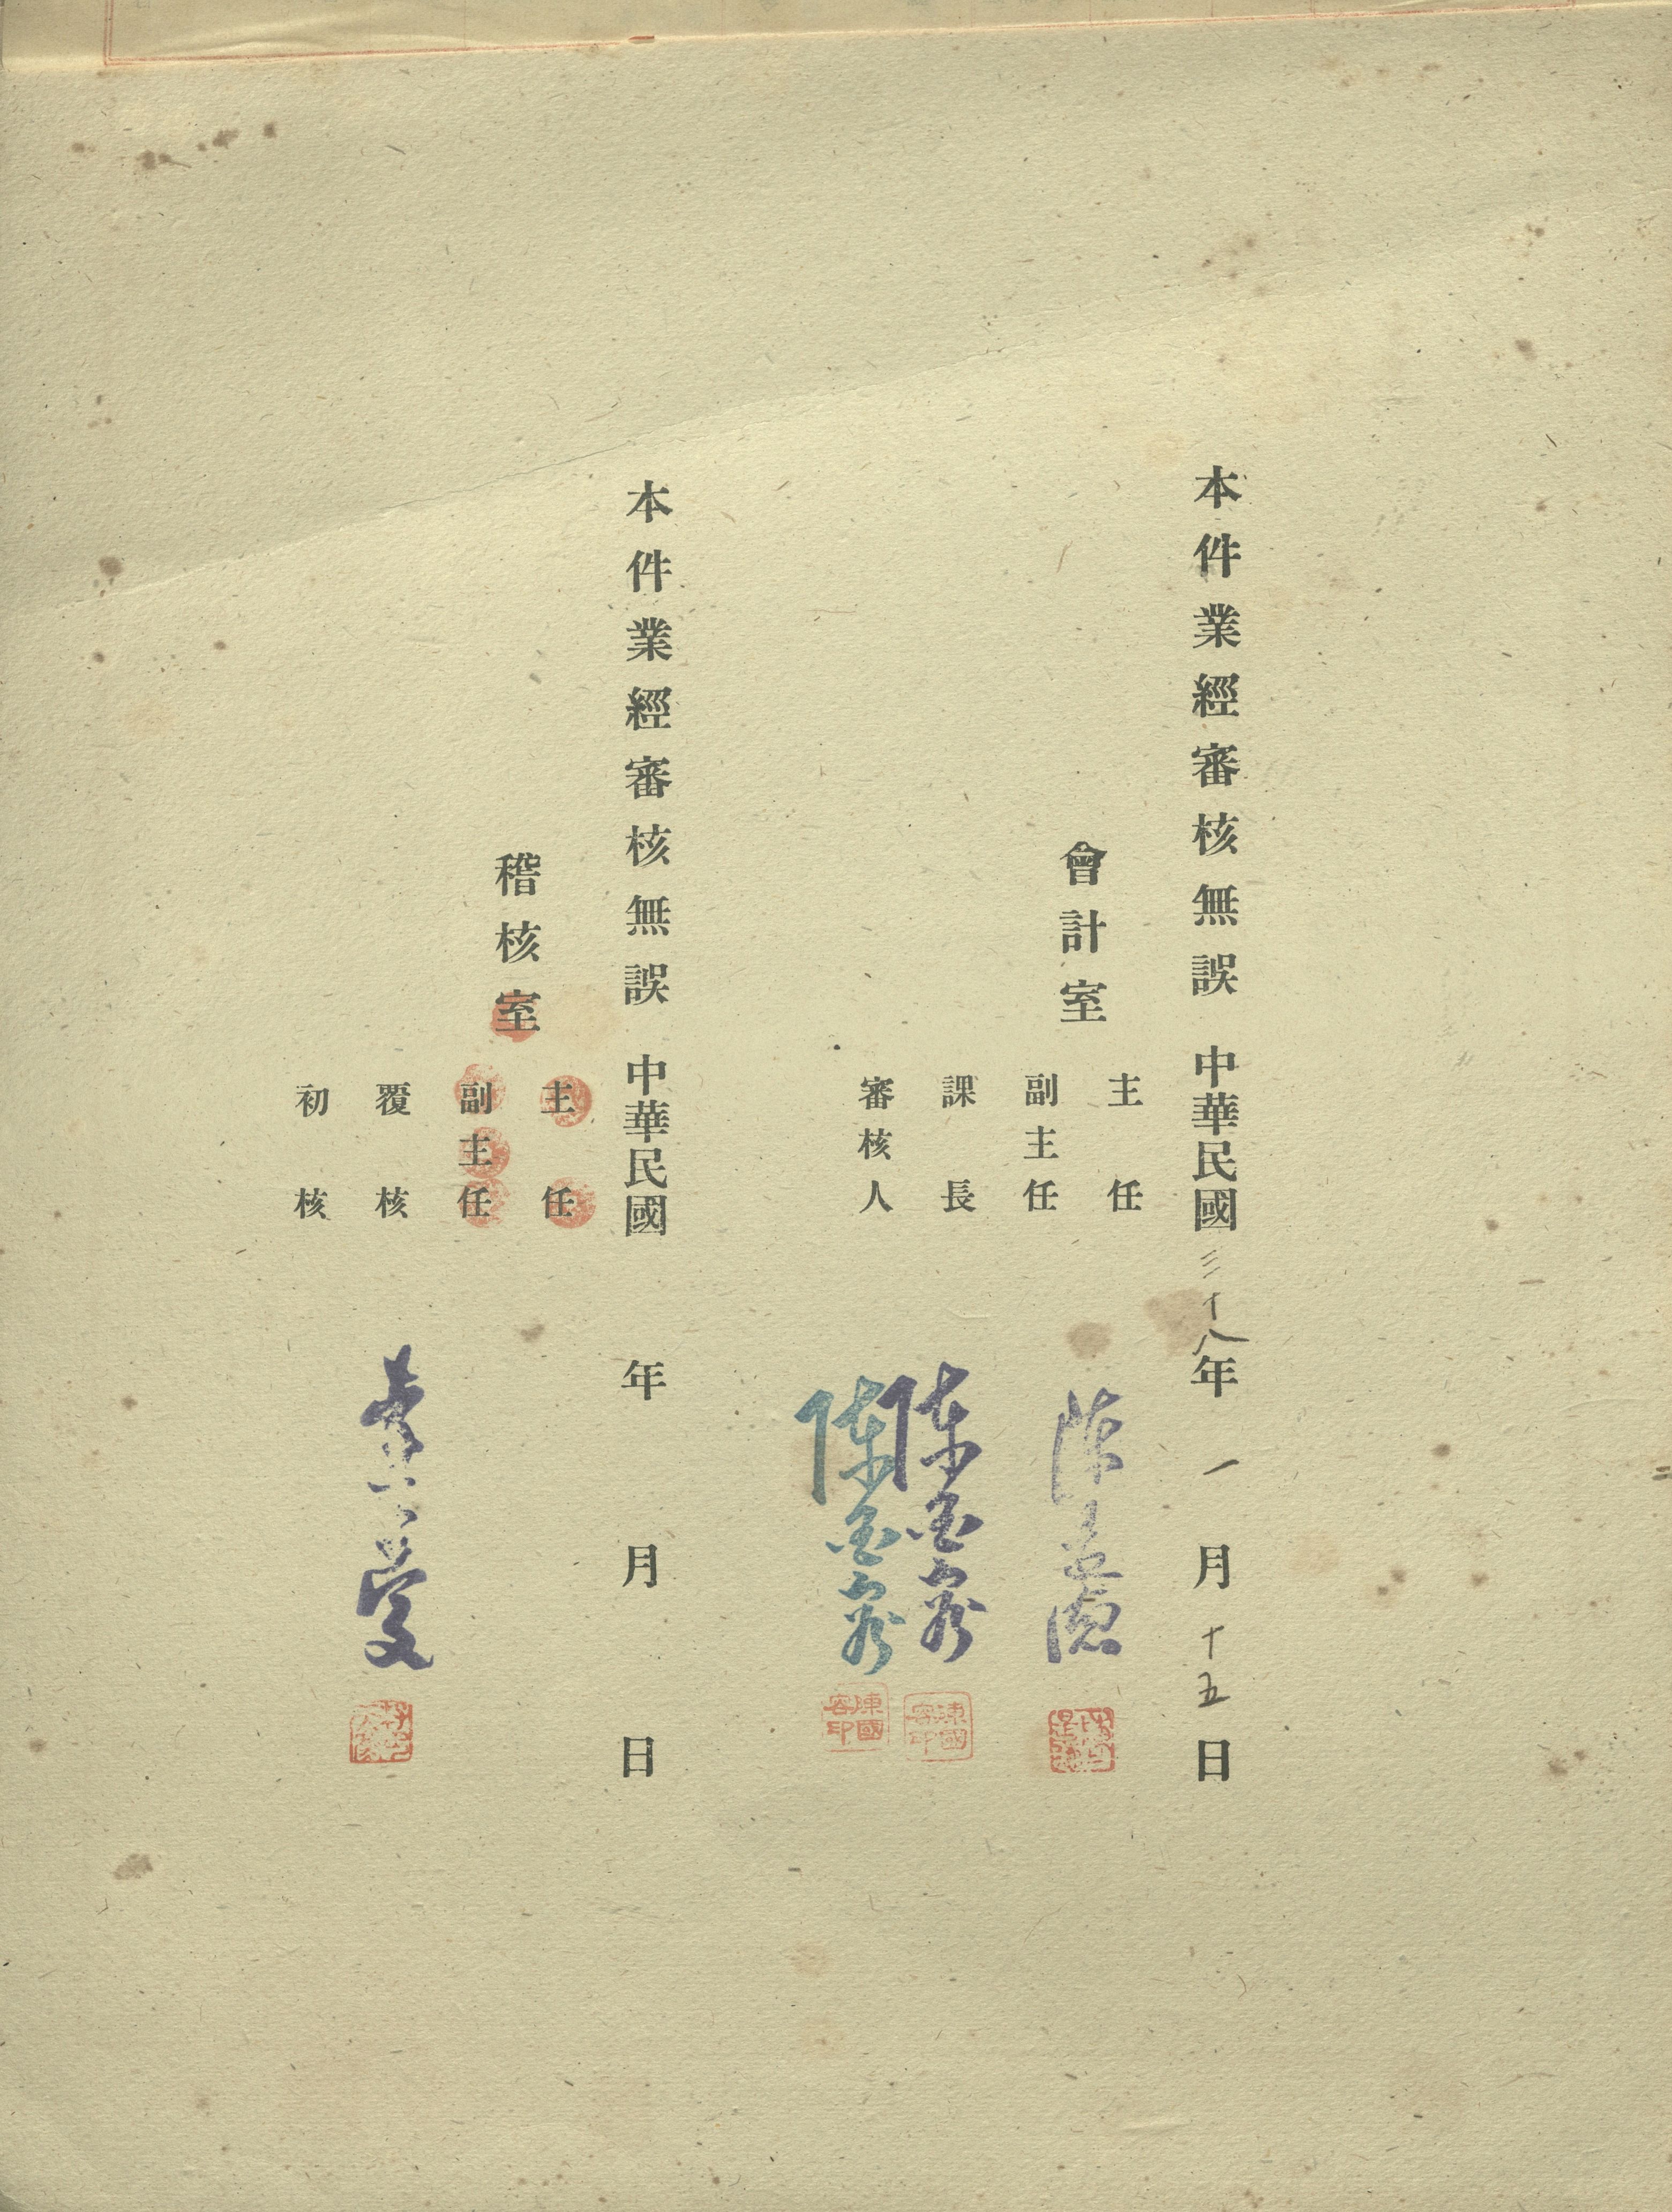 本件業經審核無誤 中華民國三十八年一月十五日
會計室
主任
副主任
課長
審核人
陳國容
陳國容
陳國容印
陳國容印
本件業經審核無誤 中華民國 年 月 日
稽核室
主任
副主任
覆核
初核